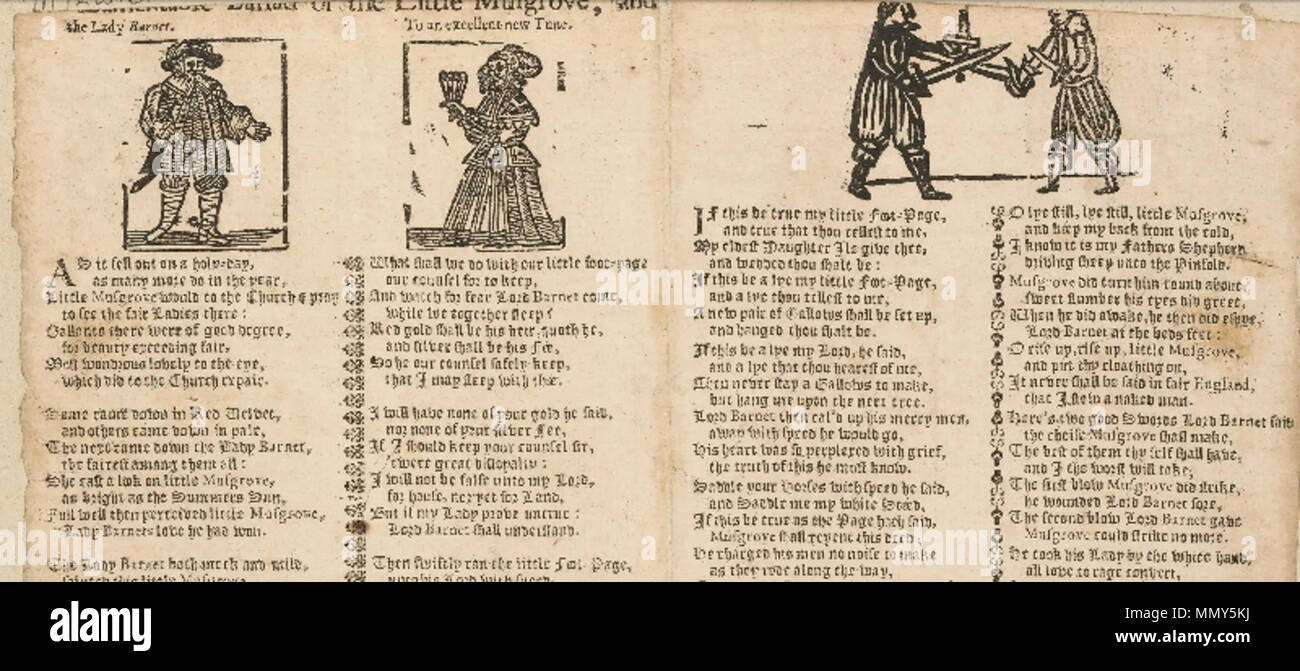 Lamentable Ballad of the Little Musgrove, and
the Lady Barnet.
To an excellent new Tune.
AS it fell out on a holy-day,
as many more do in the year,
Little Musgrove would to the Church & pray
to see the fair Ladies there:
Gallants there were of good degree,
for beauty exceeding fair,
Most wondrous lovely to the eye,
which did to the Church repair.
Some came down in Red Velvet,
and others came down in pale,
The next came down the Lady Barnet,
the fairest among them all:
She cast a look on little Musgrove,
as bright as the Summers Sun,
Full well then perceived little Musgrove,
Lady Barnets love he had won.
The Lady Barnet both meek and mild,
saluted this little Musgrove
What shall we do with our little foot-page
our counsel for to keep,
And watch for fear Lord Barnet come,
while we together sleep?
Red gold shall be his heir, quoth he,
and silver shall be his Fee,
So he our counsel safely keep,
that I may sleep with thee.
I will have none of your gold he said,
nor none of your silver Fee,
If I should keep your counsel sir,
t'were great disloyalty:
I will not be false unto my Lord,
for house, nor yet for Land,
But if my Lady prove untrue:
Lord Barnet shall understand.
Then swiftly ran the little Foot-Page,
unto his Lord with speed
IF this be true my little Foot-Page,
and true that thou tellest to me,
My eldest Daughter Ile give thee,
and wedded thou shalt be:
If this be a lye my little Foot-Page,
and a lye thou tellest to me,
A new pair of Gallows shall be set up,
and hanged thou shalt be.
If this be a lye my Lord, he said,
and a lye that thou hearest of me,
Then never stay a Gallows to make,
but hang me upon the next tree.
Lord Barnet then cal'd up his merry men,
away with speed he would go,
His heart was so perplexed with grief,
the truth of this he must know.
Saddle your Horses with speed he said,
and Saddle me my white Steed,
If this be true as the Page hath said,
Musgrove shall repent this deed:
He charged his men no noise to make
as they rode along the way,
O lye still, lye still, little Musgrove,
and keep my back from the cold,
I know it is my Fathers Shepherd
driving sheep unto the Pinfold.
Musgrove did turn him round about,
sweet slumber his eyes did greet,
When he did awake, he then did espye,
Lord Barnet at the beds feet:
O rise up, rise up, little Musgrove,
and put thy cloathing on,
It never shall be said in fair England,
that I slew a naked man.
Here's two good Swords Lord Barnet said
the choise Musgrove shall make,
The best of them thy self shall have,
and I the worst will take;
The first blow Musgrove did strike,
he wounded Lord Barnet sore,
The second blow Lord Barnet gave
Musgrove could strike no more.
He took his Lady by the white hand,
all love to rage convert,
alamy
alamy
Image ID: MMY5KJ
www.alamy.com